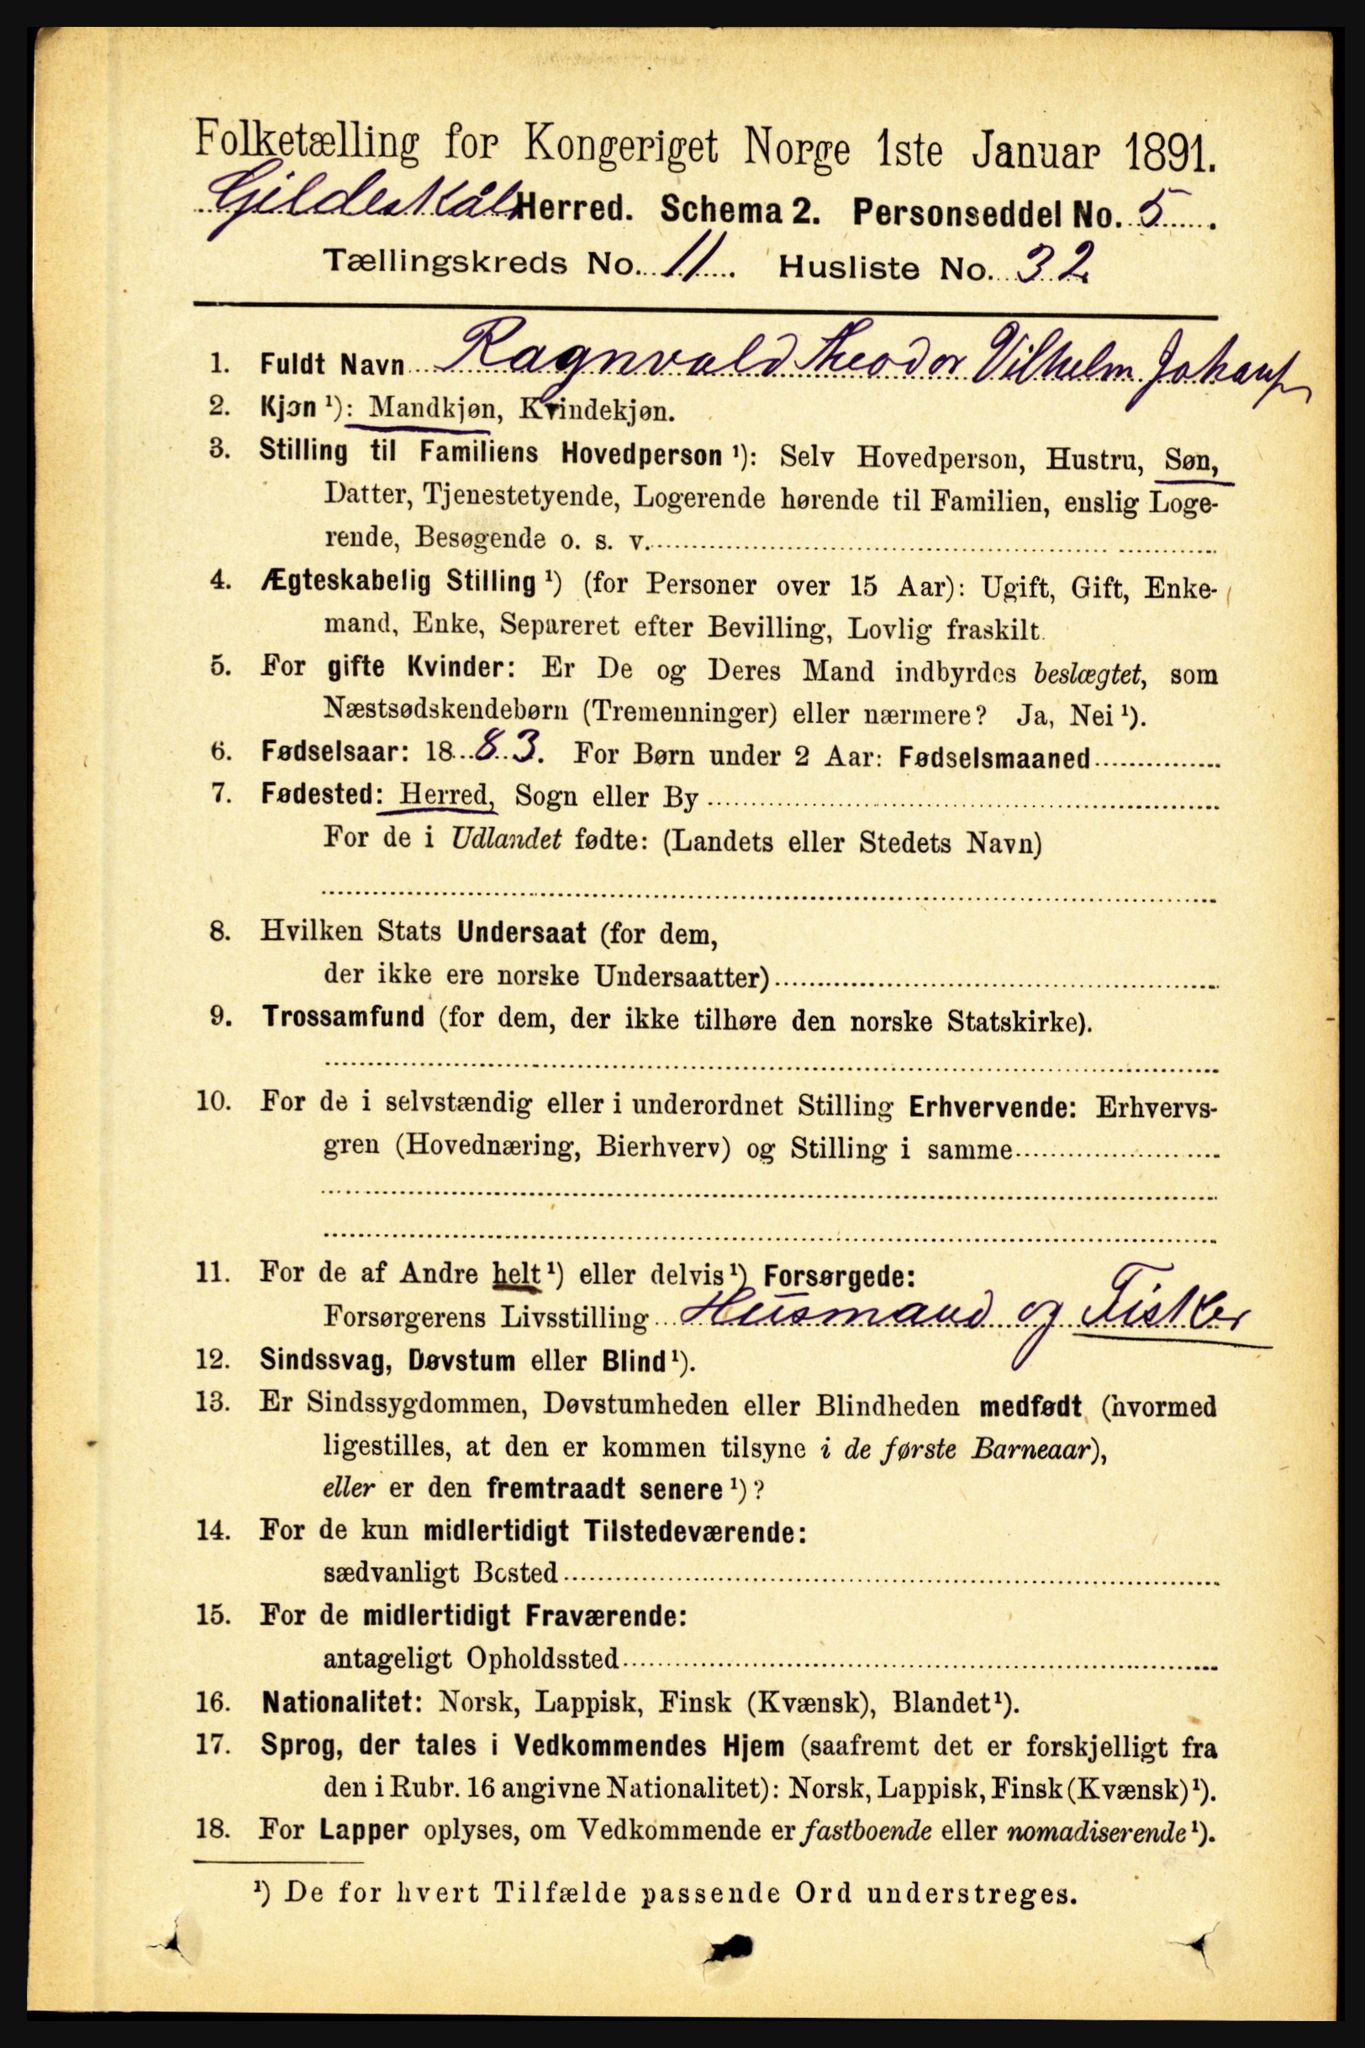 Folketælling for Kongeriget Norge 1ste Januar 1891.
Gildeskål Herred. Schema 2. Personseddel No. 5.
Tællingskreds No. 11. Husliste No. 32
1. Fuldt Navn Ragnvald Theodor Vilhelm
2. Kjøn ¹): Mandkjøn, Kvindekjøn.
3. Stilling til Familiens Hovedperson ¹): Selv Hovedperson, Hustru, Søn,
Datter, Tjenestetyende, Logerende hørende til Familien, enslig Loge-
rende, Besøgende o. s. v.
4. Ægteskabelig Stilling ¹) (for Personer over 15 Aar): Ugift, Gift, Enke-
mand, Enke, Separeret efter Bevilling, Lovlig fraskilt.
5. For gifte Kvinder: Er De og Deres Mand indbyrdes beslægtet, som
Næstsødskendebørn (Tremenninger) eller nærmere? Ja, Nei ¹).
6. Fødselsaar: 1883. For Børn under 2 Aar: Fødselsmaaned
7. Fødested: Herred, Sogn eller By
For de i Udlandet fødte: (Landets eller Stedets Navn)
8. Hvilken Stats Undersaat (for dem,
der ikke ere norske Undersaatter)
9. Trossamfund (for dem, der ikke tilhøre den norske Statskirke).
10. For de i selvstændig eller i underordnet Stilling Erhvervende: Erhvervs-
gren (Hovednæring, Bierhverv) og Stilling i samme
11. For de af Andre helt ¹) eller delvis ¹) Forsørgede:
Forsørgerens Livsstilling Husmand og Fisker
12. Sindssvag, Døvstum eller Blind ¹).
13. Er Sindssygdommen, Døvstumheden eller Blindheden medfødt (hvormed
ligestilles, at den er kommen tilsyne i de første Barneaar),
eller er den fremtraadt senere ¹)?
14. For de kun midlertidigt Tilstedeværende:
sædvanligt Bosted
15. For de midlertidigt Fraværende:
antageligt Opholdssted
16. Nationalitet: Norsk, Lappisk, Finsk (Kvænsk), Blandet ¹).
17. Sprog, der tales i Vedkommendes Hjem (saafremt det er forskjelligt fra
den i Rubr. 16 angivne Nationalitet): Norsk, Lappisk, Finsk (Kvænsk) ¹).
18. For Lapper oplyses, om Vedkommende er fastboende eller nomadiserende ¹).
¹) De for hvert Tilfælde passende Ord understreges.